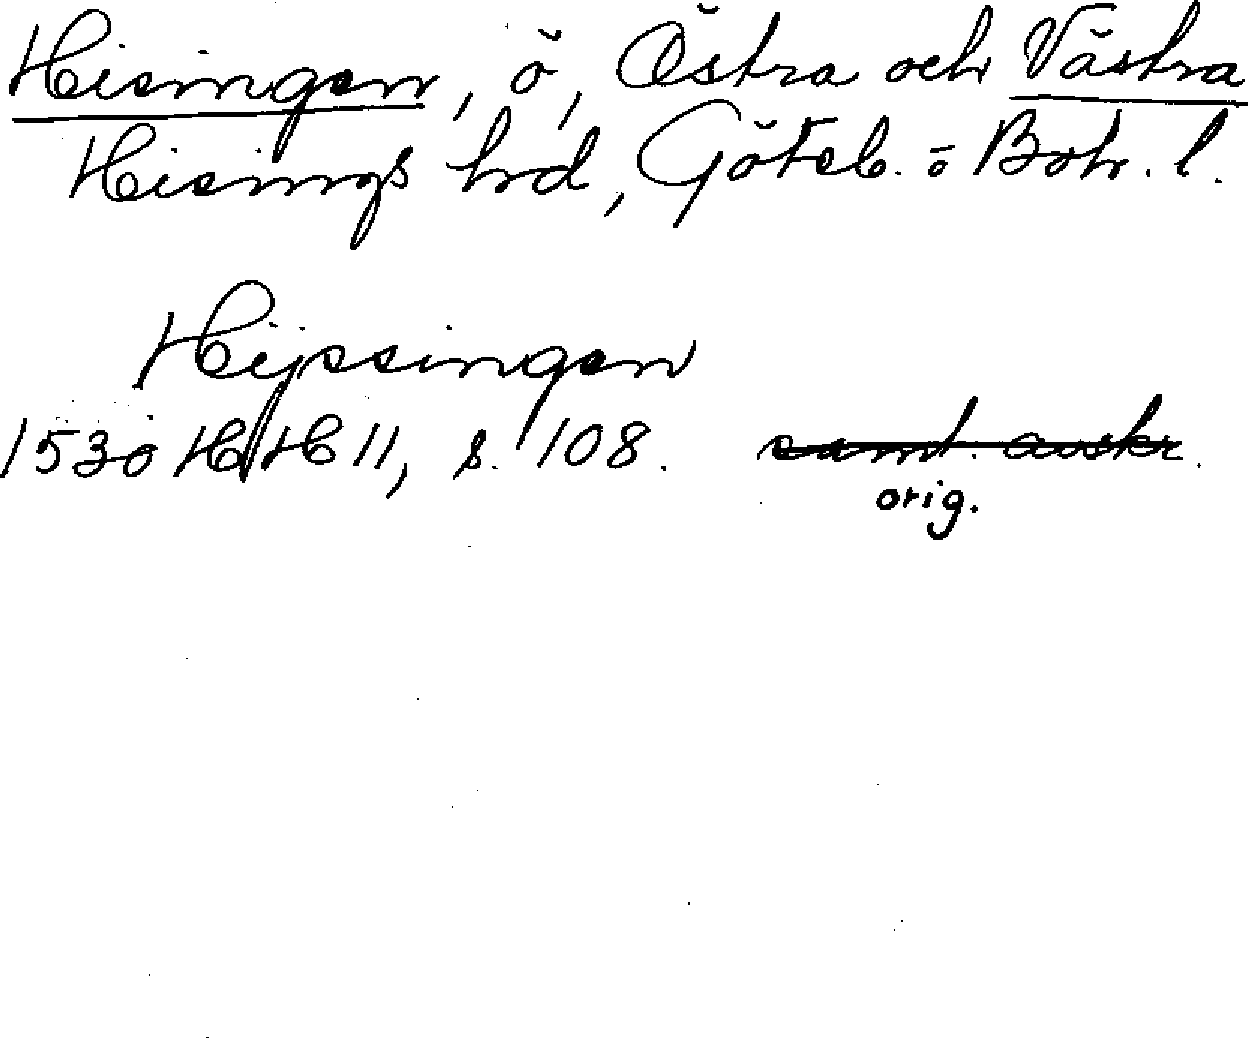 Hisingen, ö, Östra och Västra
Hisings hrd, Göteb. o Boh. l.
Hijssingen
1530 HH 11, s. 108. samt. avskr.
orig.